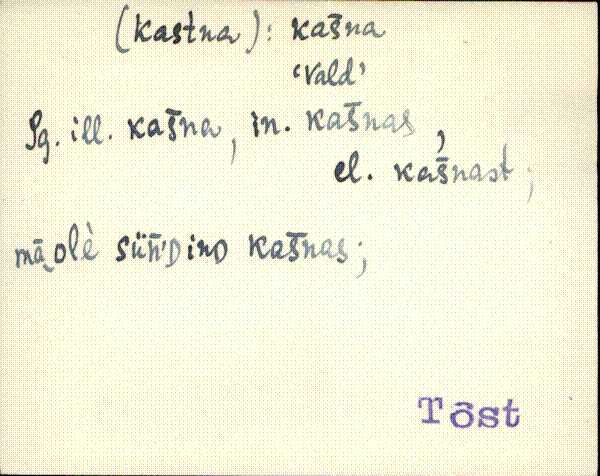 (Kastna): kas̄na
‘Vald’
Sg. ill. kas̄na, in. kas̄nas,
el. kas̄nast;
mā‿olè süǹ̄'ᴅinᴅ kas̄nas;
Tõst